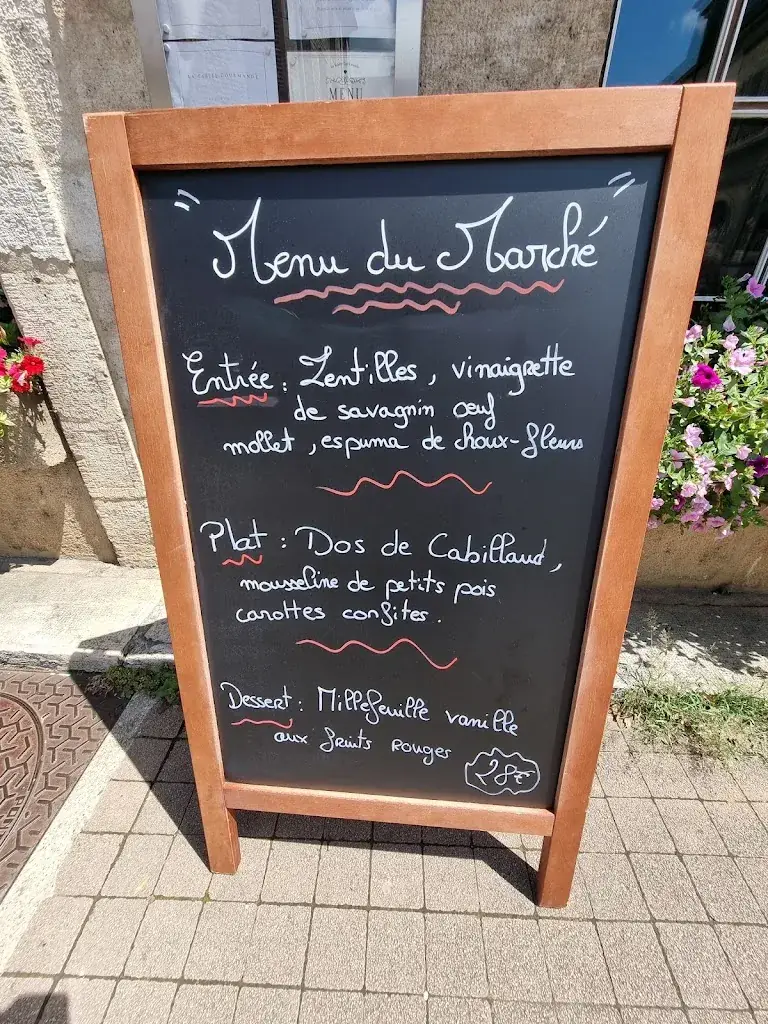 MENU
Menu du Marché
Entrée : Lentilles, vinaigrette
de savagnin œuf
mollet, espuma de choux-fleurs
Plat : Dos de Cabillaud,
mousseline de petits pois
carottes confites.
Dessert : Millefeuille vanille
aux fruits rouges
28€